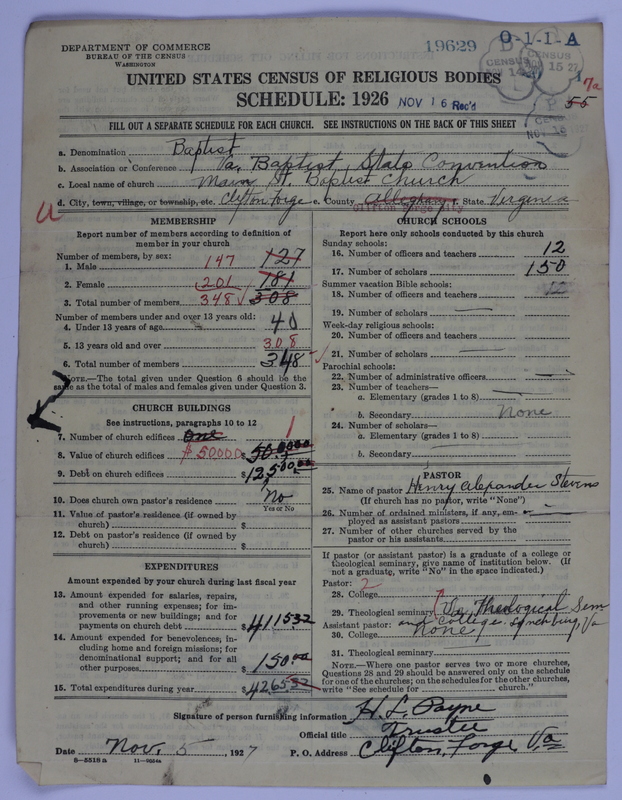 19629 O-1-1-A
DEPARTMENT OF COMMERCE
BUREAU OF THE CENSUS
WASHINGTON
UNITED STATES CENSUS OF RELIGIOUS BODIES
SCHEDULE: 1926 NOV 16 Rec'd
7a
55
FILL OUT A SEPARATE SCHEDULE FOR EACH CHURCH. SEE INSTRUCTIONS ON THE BACK OF THIS SHEET
a. Denomination Baptist
b. Association or Conference Va. Baptist State Convention
c. Local name of church Main St. Baptist Church
d. City, town, village, or township, etc. Clifton Forge e. County Alleghany f. State Virginia
Clifton Forge City
MEMBERSHIP
Report number of members according to definition of
member in your church
Number of members, by sex:
1. Male 147 127
2. Female 201 181
3. Total number of members 348 308
Number of members under and over 13 years old:
4. Under 13 years of age 40
5. 13 years old and over 308
6. Total number of members 348
NOTE.—The total given under Question 6 should be the
same as the total of males and females given under Question 3.
CHURCH BUILDINGS
See instructions, paragraphs 10 to 12
7. Number of church edifices One 1
8. Value of church edifices $50000 $50.0000
9. Debt on church edifices $12500.00
10. Does church own pastor's residence No
Yes or No
11. Value of pastor's residence (if owned by
church) $
12. Debt on pastor's residence (if owned by
church) $
EXPENDITURES
Amount expended by your church during last fiscal year
13. Amount expended for salaries, repairs,
and other running expenses; for im-
provements or new buildings; and for
payments on church debt $411532
14. Amount expended for benevolences, in-
cluding home and foreign missions; for
denominational support; and for all
other purposes 150.00
15. Total expenditures during year $426532
CHURCH SCHOOLS
Report here only schools conducted by this church
Sunday schools:
16. Number of officers and teachers 12
17. Number of scholars 150
Summer vacation Bible schools:
18. Number of officers and teachers 12
19. Number of scholars
Week-day religious schools:
20. Number of officers and teachers
21. Number of scholars
Parochial schools:
22. Number of administrative officers
23. Number of teachers—
a. Elementary (grades 1 to 8)
b. Secondary None
24. Number of scholars—
a. Elementary (grades 1 to 8)
b. Secondary
PASTOR
25. Name of pastor Henry Alexander Stevens
(If church has no pastor, write "None")
26. Number of ordained ministers, if any, em-
ployed as assistant pastors
27. Number of other churches served by the
pastor or his assistants
If pastor (or assistant pastor) is a graduate of a college or
theological seminary, give name of institution below. (If
not a graduate, write "No" in the space indicated.)
Pastor: 2
28. College
29. Theological seminary Va. Theological Sem
Assistant pastor: and College. Lynchburg, Va
30. College None
31. Theological seminary
NOTE.—Where one pastor serves two or more churches,
Questions 28 and 29 should be answered only on the schedule
for one of the churches; on the schedules for the other churches,
write "See schedule for church."
Signature of person furnishing information H. L. Payne
Official title Trustee
Date Nov. 5, 1927 P. O. Address Clifton, Forge, Va
8—5518a 11—9064a